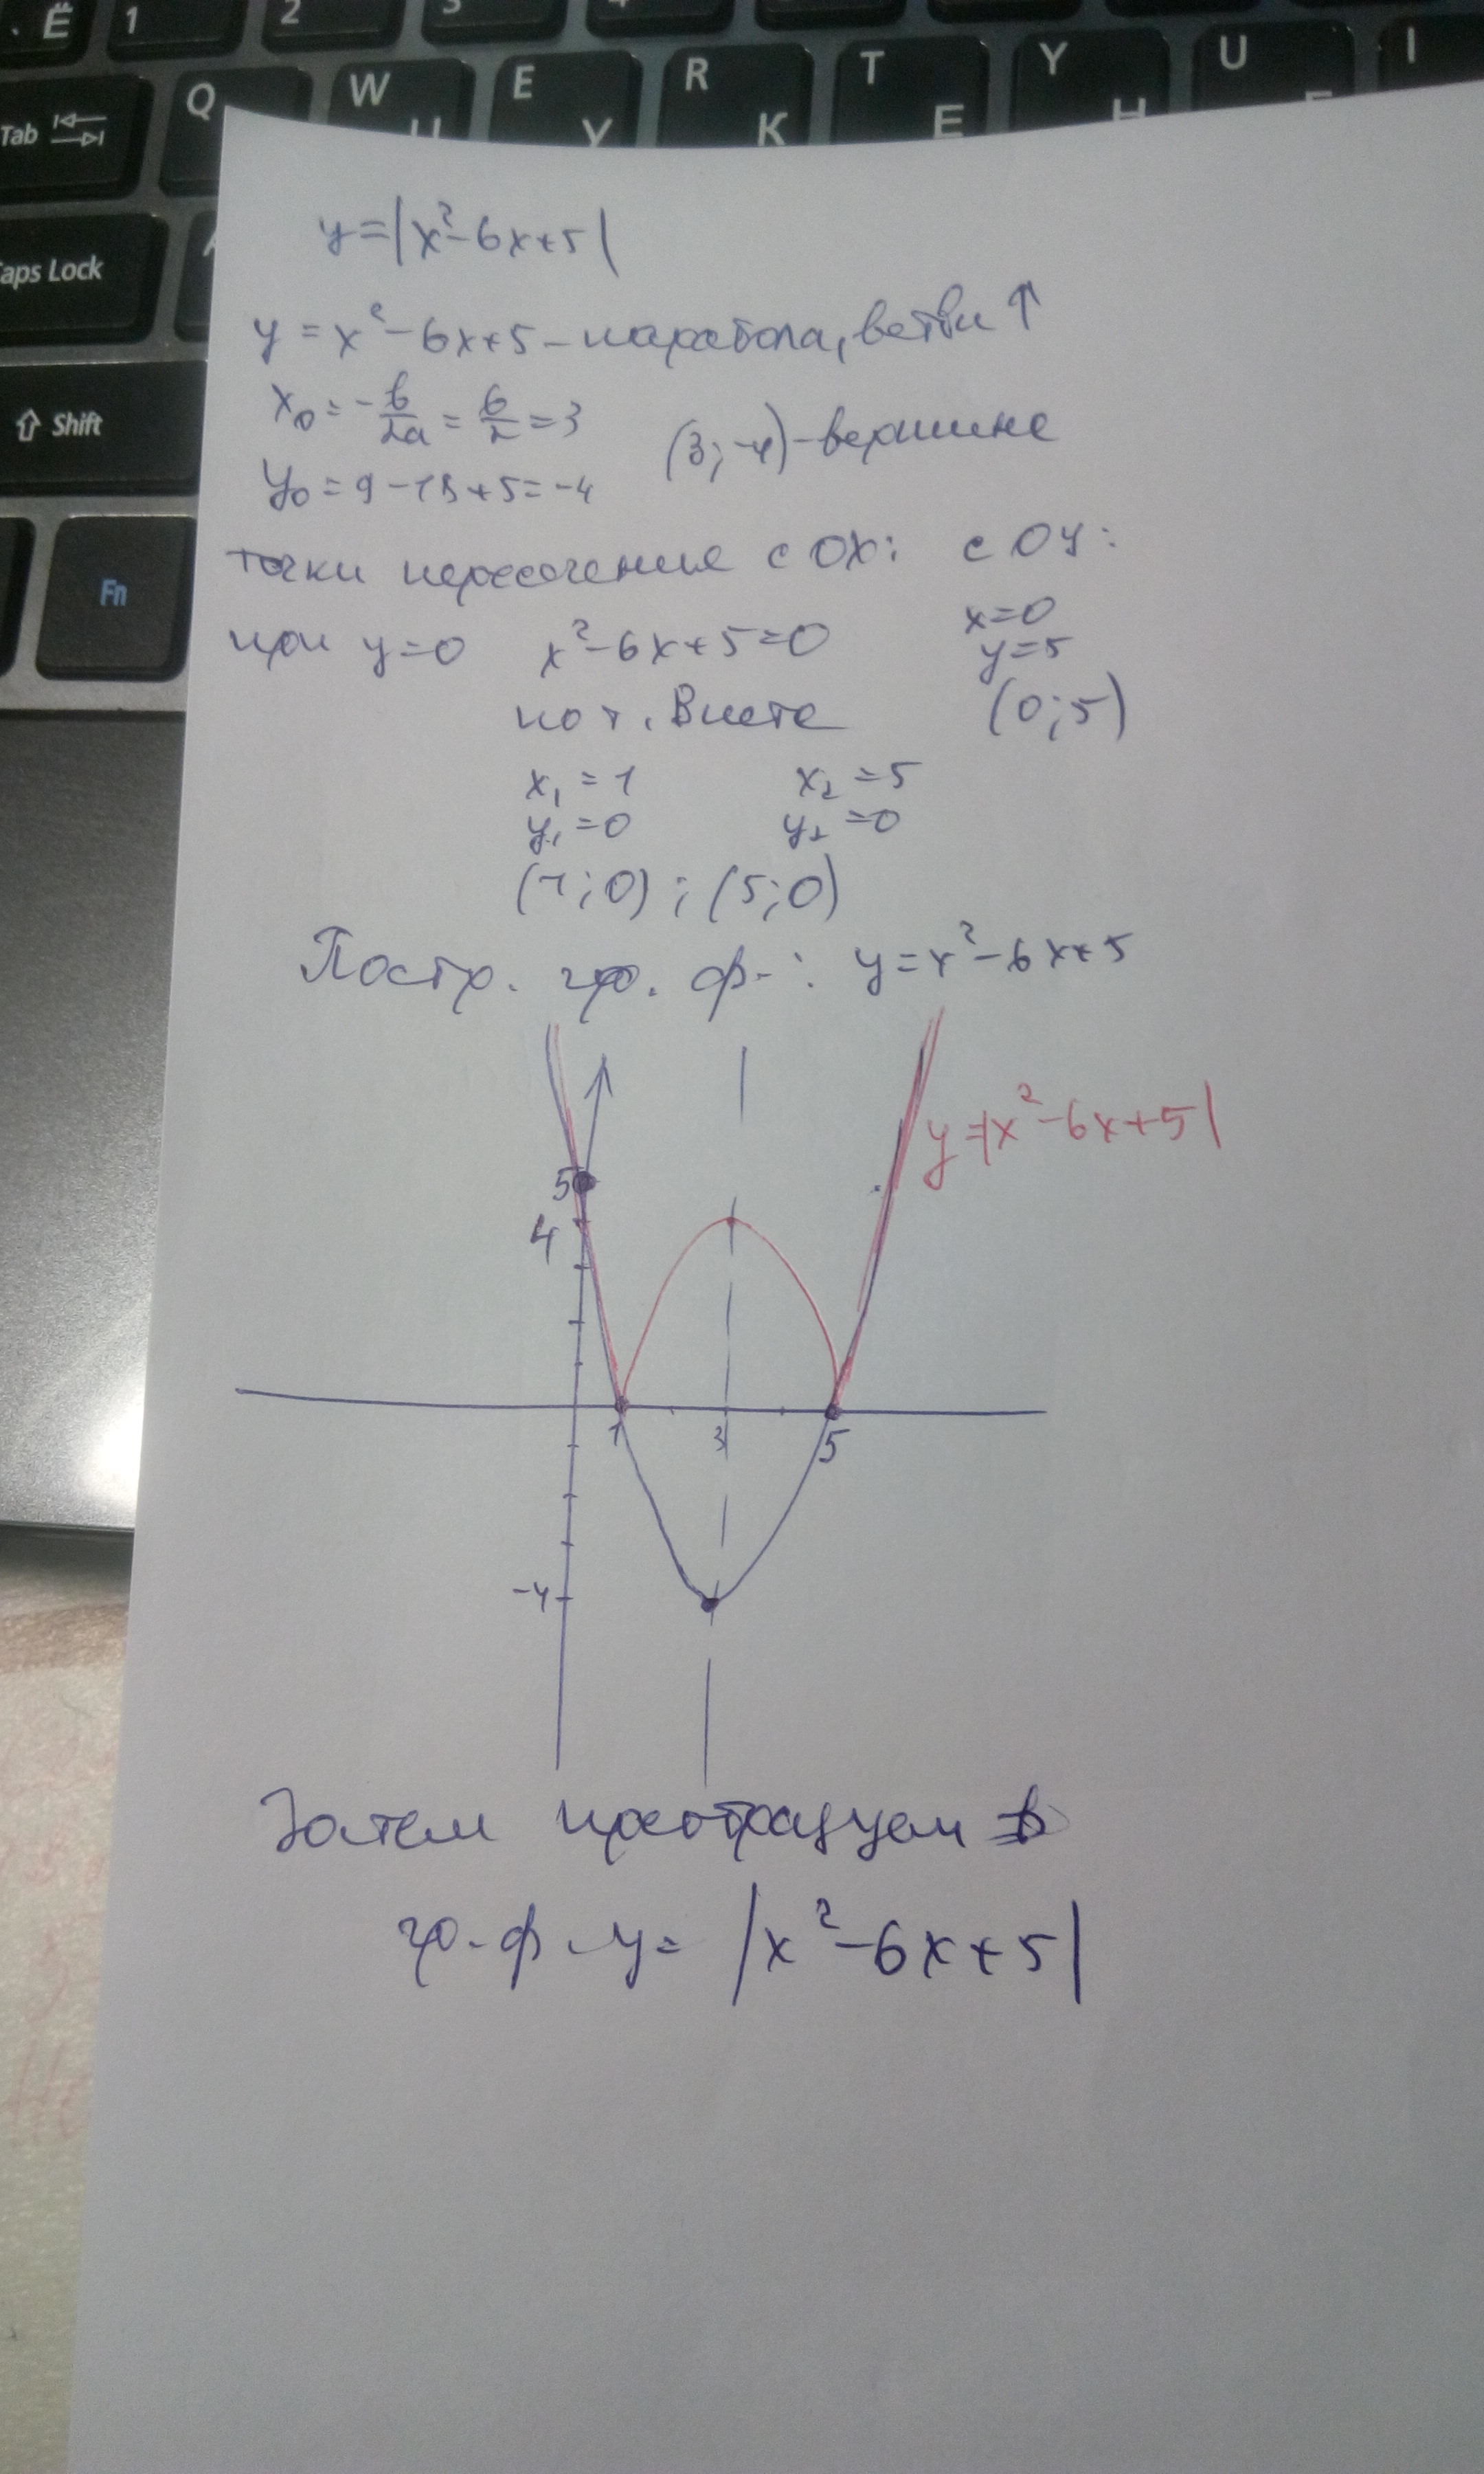 Ё 1 2 3 4
Tab Q W E R T Y U I
К Е
Caps Lock
Shift
Fn
y=|x²-6x+5|
y=x²-6x+5 - парабола, ветви ↑
x₀=-b/2a=6/2=3
(3;-4)-вершина
y₀=9-18+5=-4
точки пересечения с OX: с OY:
при y=0 x²-6x+5=0
x=0
y=5
по т. Виета
(0;5)
x₁=1 x₂=5
y₁=0 y₂=0
(1;0);(5;0)
Постр. гр. ф-: y=x²-6x+5
y=|x²-6x+5|
5
4
1 3 5
-4
Затем преобразуем в
гр. ф. y=|x²-6x+5|